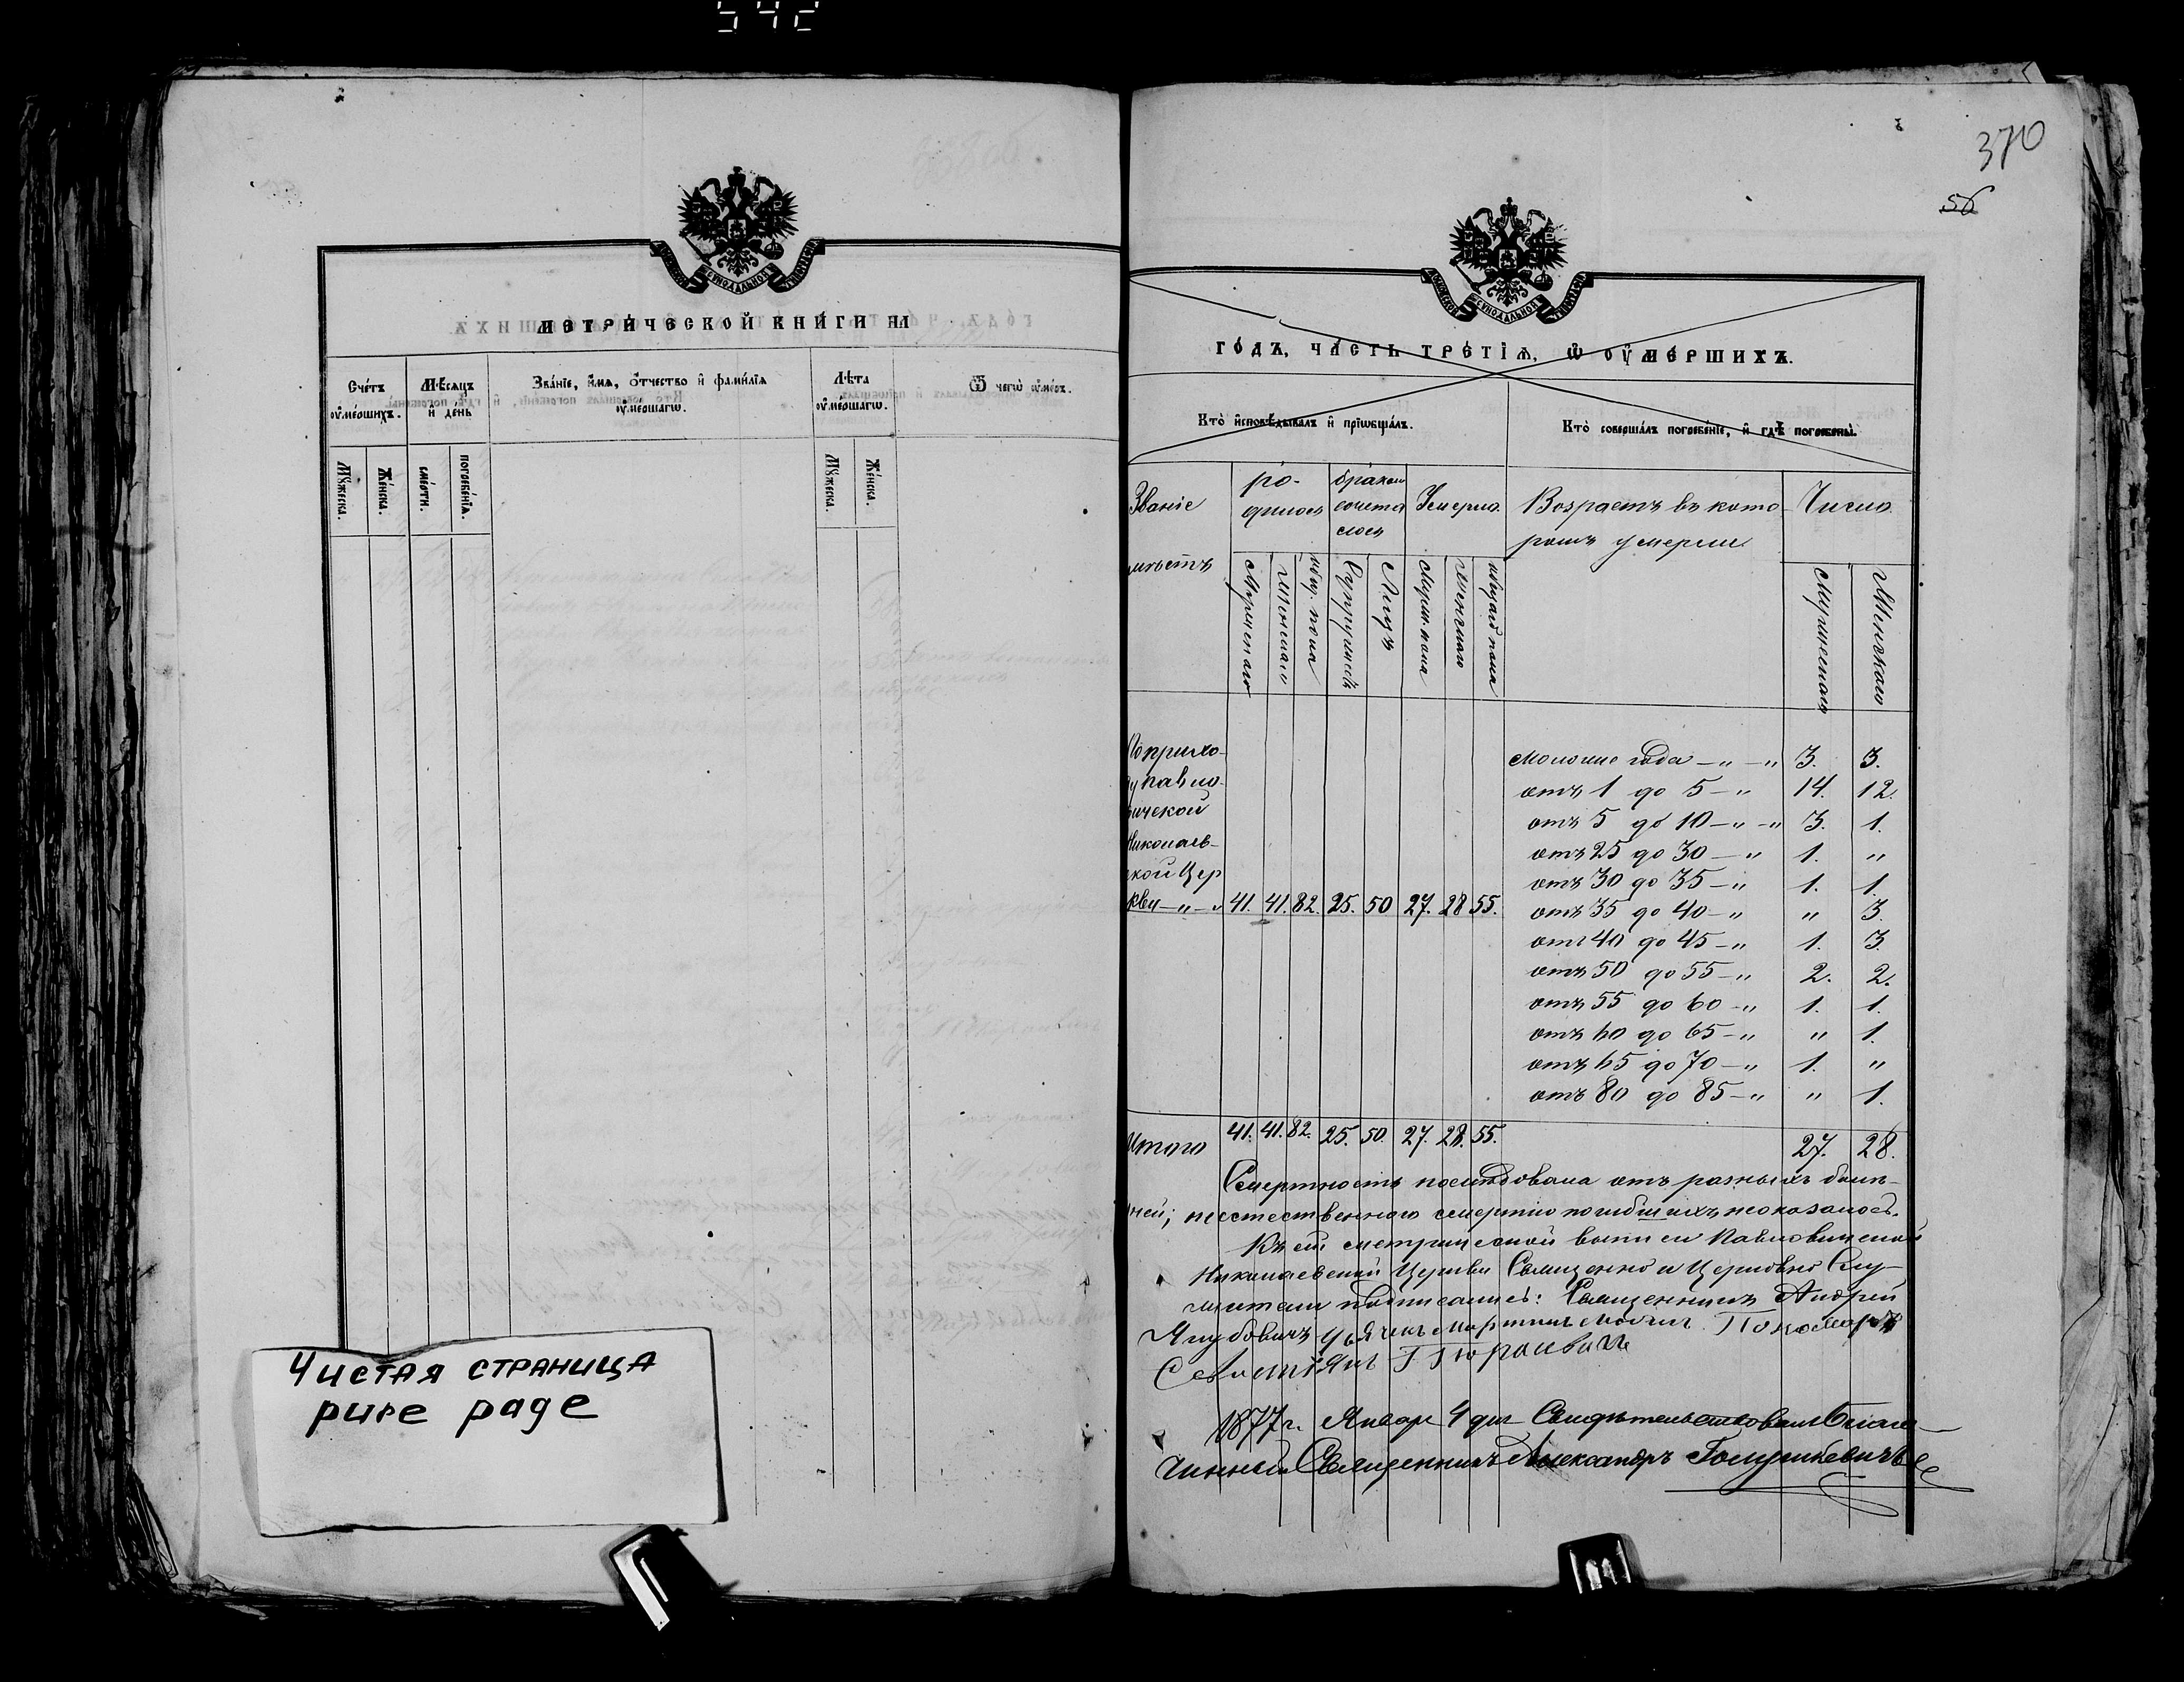 542
370
56
МЕТРИЧЕСКОЙ КНИГИ НА
Счетъ оумершихъ.
Мѣсяцъ и день
Званіе, имя, отчество и фамилія оумершагω.
Лѣта оумершагω.
Ѿ чегω оумеръ.
Мꙋжеска.
Женска.
смерти.
погребенія.
Мꙋжеска.
Женска.
Чистая страница
pure page
ГОДЪ, ЧАСТЬ ТРЕТІЯ, Ѡ ОУМЕРШИХЪ.
Кто исповѣдывалъ и пріωбщалъ.
Кто совершалъ погребеніе, и гдѣ погребены.
Званіе
мѣстъ
родилось
бракомъ сочеталось
Умерло
Возрастъ въ кото-
ромъ умерли
Число
Мужескаго
Женскаго
общ. пола
Супружествъ
Лицъ
Мужск. пола
Женскаго
общаго пола
Мужескаго
Женскаго
По прихо-
ду Павло-
вичской
Николаев-
ской Цер
кви —„—„ 41. 41. 82. 25. 50 27. 28 55.
Моложе года —„ —„ 3. 3.
отъ 1 до 5 —„ 14. 12.
отъ 5 до 10 —„ —„ 3. 1.
отъ 25 до 30 —„ 1. „
отъ 30 до 35 —„ 1. 1.
отъ 35 до 40 —„ „ 3.
отъ 40 до 45 —„ 1. 3.
отъ 50 до 55 —„ 2. 2.
отъ 55 до 60 —„ 1. 1.
отъ 60 до 65 —„ „ 1.
отъ 65 до 70 —„ 1. „
отъ 80 до 85 —„ „ 1.
Итого 41. 41. 82. 25. 50. 27. 28. 55. 27. 28.
Смертность послѣдовала отъ разныхъ болѣ-
зней; неестественною смертію погибшихъ неоказалось.
Къ сей метрической выписи Павловичской
Николаевской Церкви Священно и Церковно Слу-
жители подписались: Священникъ Андрей
Якубовичъ Дьячекъ Мартинъ Пономарь
1877 г. Января 4 дня Свидѣтельствовалъ Благо-
чинный Священникъ Александръ Голушкевичъ